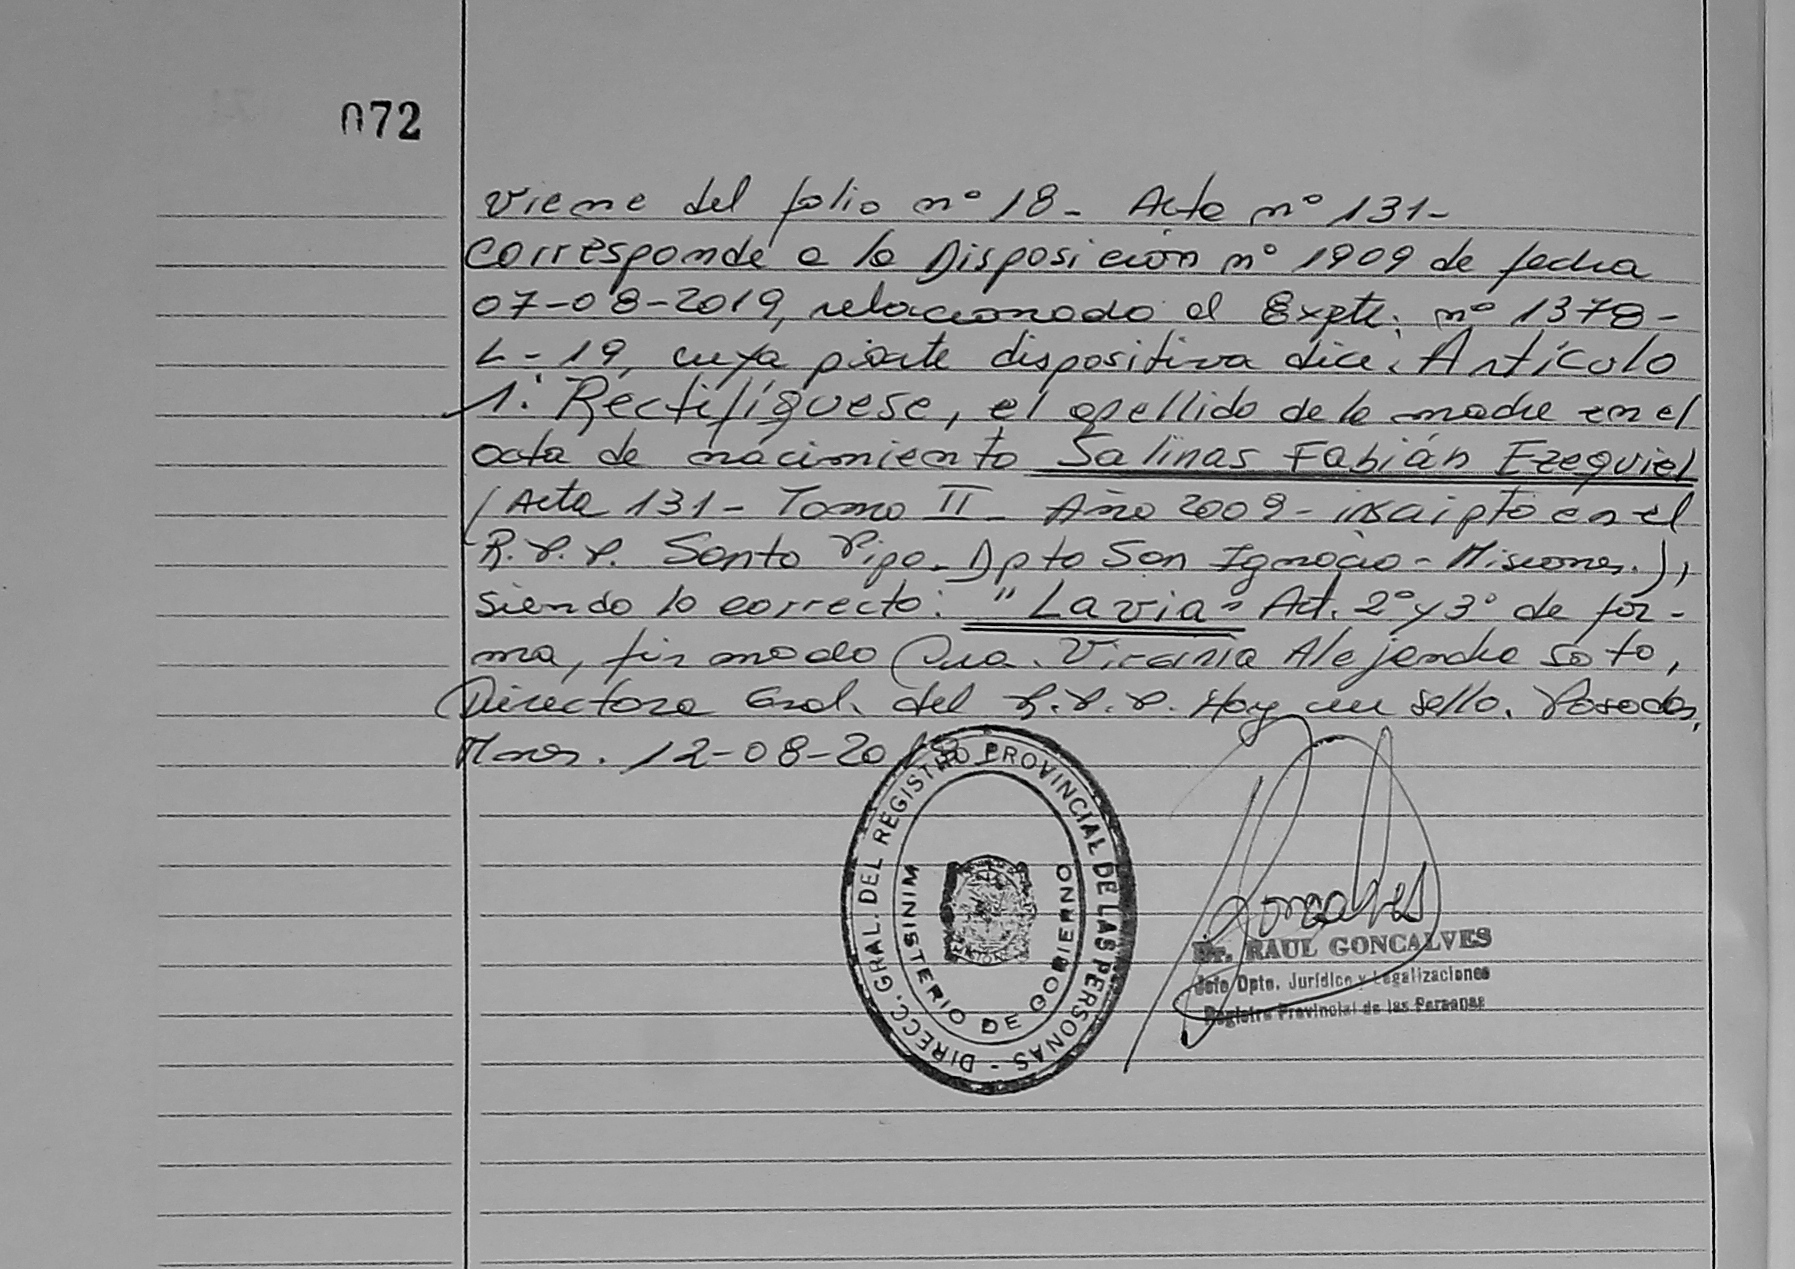 072
viene del folio nº 18 - Acta nº 131-
corresponde a la Disposición nº 1909 de fecha
07-08-2019, relacionado al Expte. nº 1378-
L-19, cuya parte dispositiva dice: Artículo
1: Rectifíquese, el apellido de la madre en el
acta de nacimiento Salinas Fabián Ezequiel
(Acta 131 - Tomo II - Año 2009 - inscripto en el
R.P.P. Santo Pipo - Dpto San Ignacio - Misiones.),
siendo lo correcto: "Lavia" Art. 2º y 3º de for-
ma, firmado Dra. Virginia Alejandra Soto,
Directora Gral. del R.P.P. Hay un sello. Posadas,
Mnes. 12-08-2019
DIRECC. GRAL. DEL REGISTRO PROVINCIAL DE LAS PERSONAS -
MINISTERIO DE GOBIERNO
Goncalves
Dr. RAUL GONCALVES
Jefe Dpto. Jurídico y Legalizaciones
Registro Provincial de las Personas